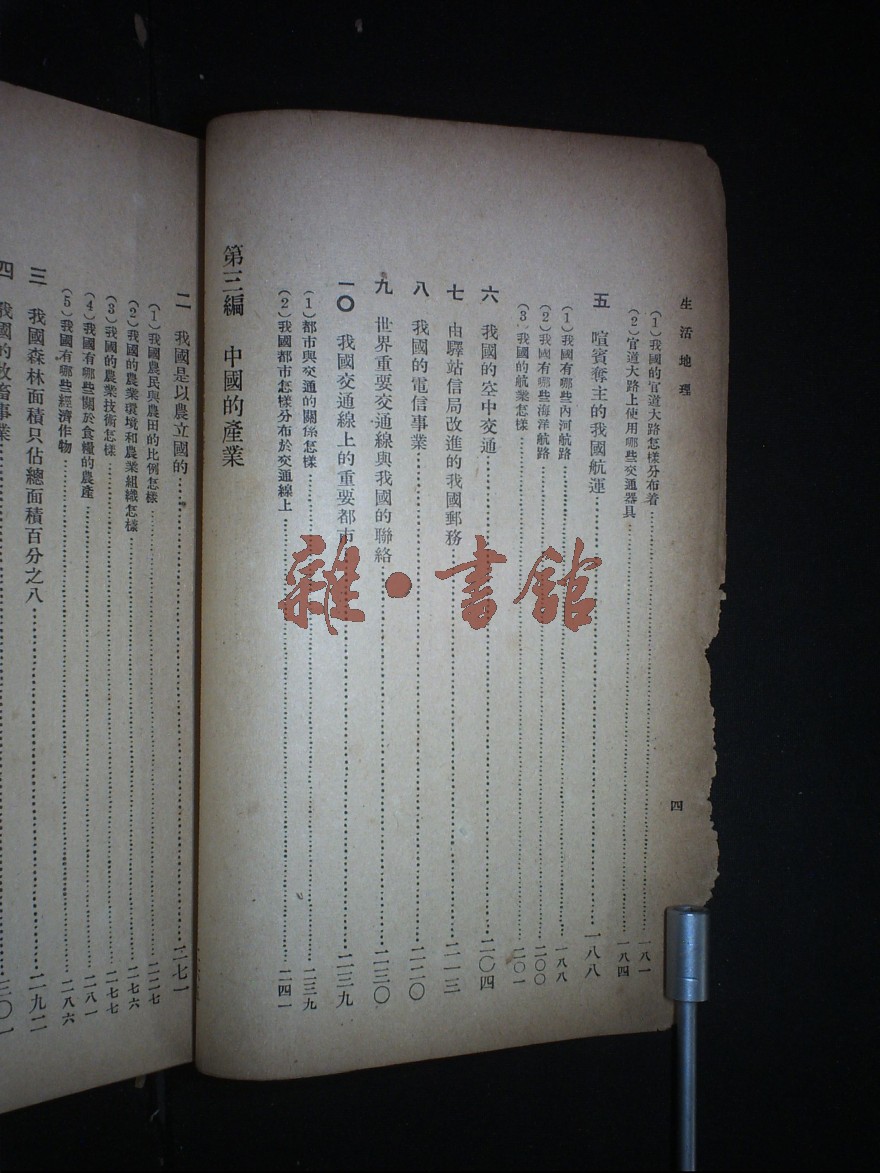 生活地理
四
（1）我國的官道大路怎樣分布着……一八一
（2）官道大路上使用哪些交通器具……一八四
五　喧賓奪主的我國航運……一八八
（1）我國有哪些內河航路……一八八
（2）我國有哪些海洋航路……二〇〇
（3）我國的航業怎樣……二〇一
六　我國的空中交通……二〇四
七　由驛站信局改進的我國郵務……二一三
八　我國的電信事業……二二〇
九　世界重要交通線與我國的聯絡……二三〇
一〇　我國交通線上的重要都市……二三九
（1）都市與交通的關係怎樣……二三九
（2）我國都市怎樣分布於交通線上……二四一
第三編　中國的產業
二　我國是以農立國的……二七一
（1）我國農民與農田的比例怎樣……二二七
（2）我國的農業環境和農業組織怎樣……二七六
（3）我國的農業技術怎樣……二七七
（4）我國有哪些關於食糧的農產……二八一
（5）我國有哪些經濟作物……二八六
三　我國森林面積只佔總面積百分之八……二九二
四　我國的牧畜事業……三〇一
雜·書館